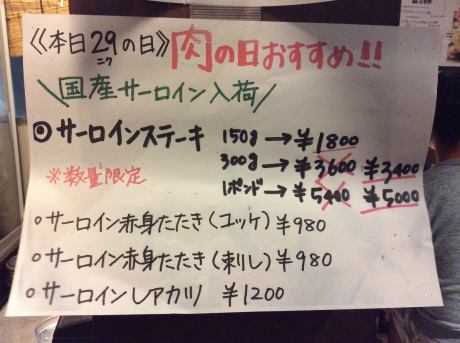 《本日29の日》肉の日おすすめ!!
ニク
\国産サーロイン入荷/
◎サーロインステーキ 150g→¥1800
300g→¥3600 ¥3400
※数量限定
1ポンド→¥5400 ¥5000
○サーロイン赤身たたき(ユッケ)¥980
○サーロイン赤身たたき(刺し)¥980
○サーロインレアカツ ¥1200